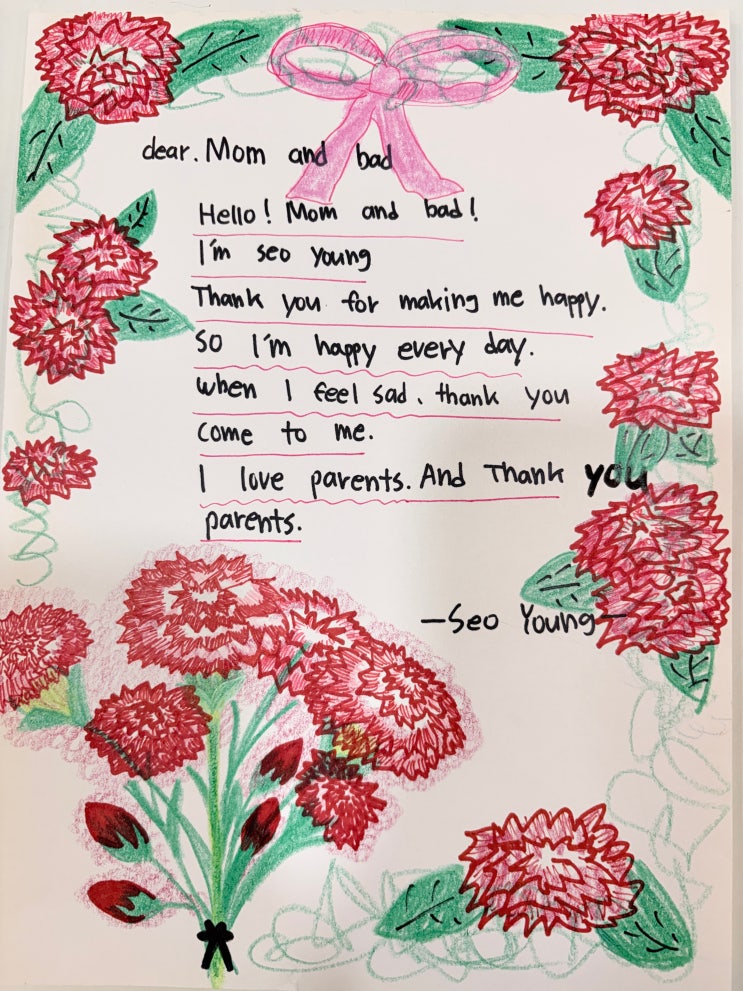 dear. Mom and bad
Hello! Mom and bad!
I'm seo young
Thank you for making me happy.
so I'm happy every day.
when I feel sad. thank you
come to me.
I love parents. And Thank you
parents.
-Seo Young-